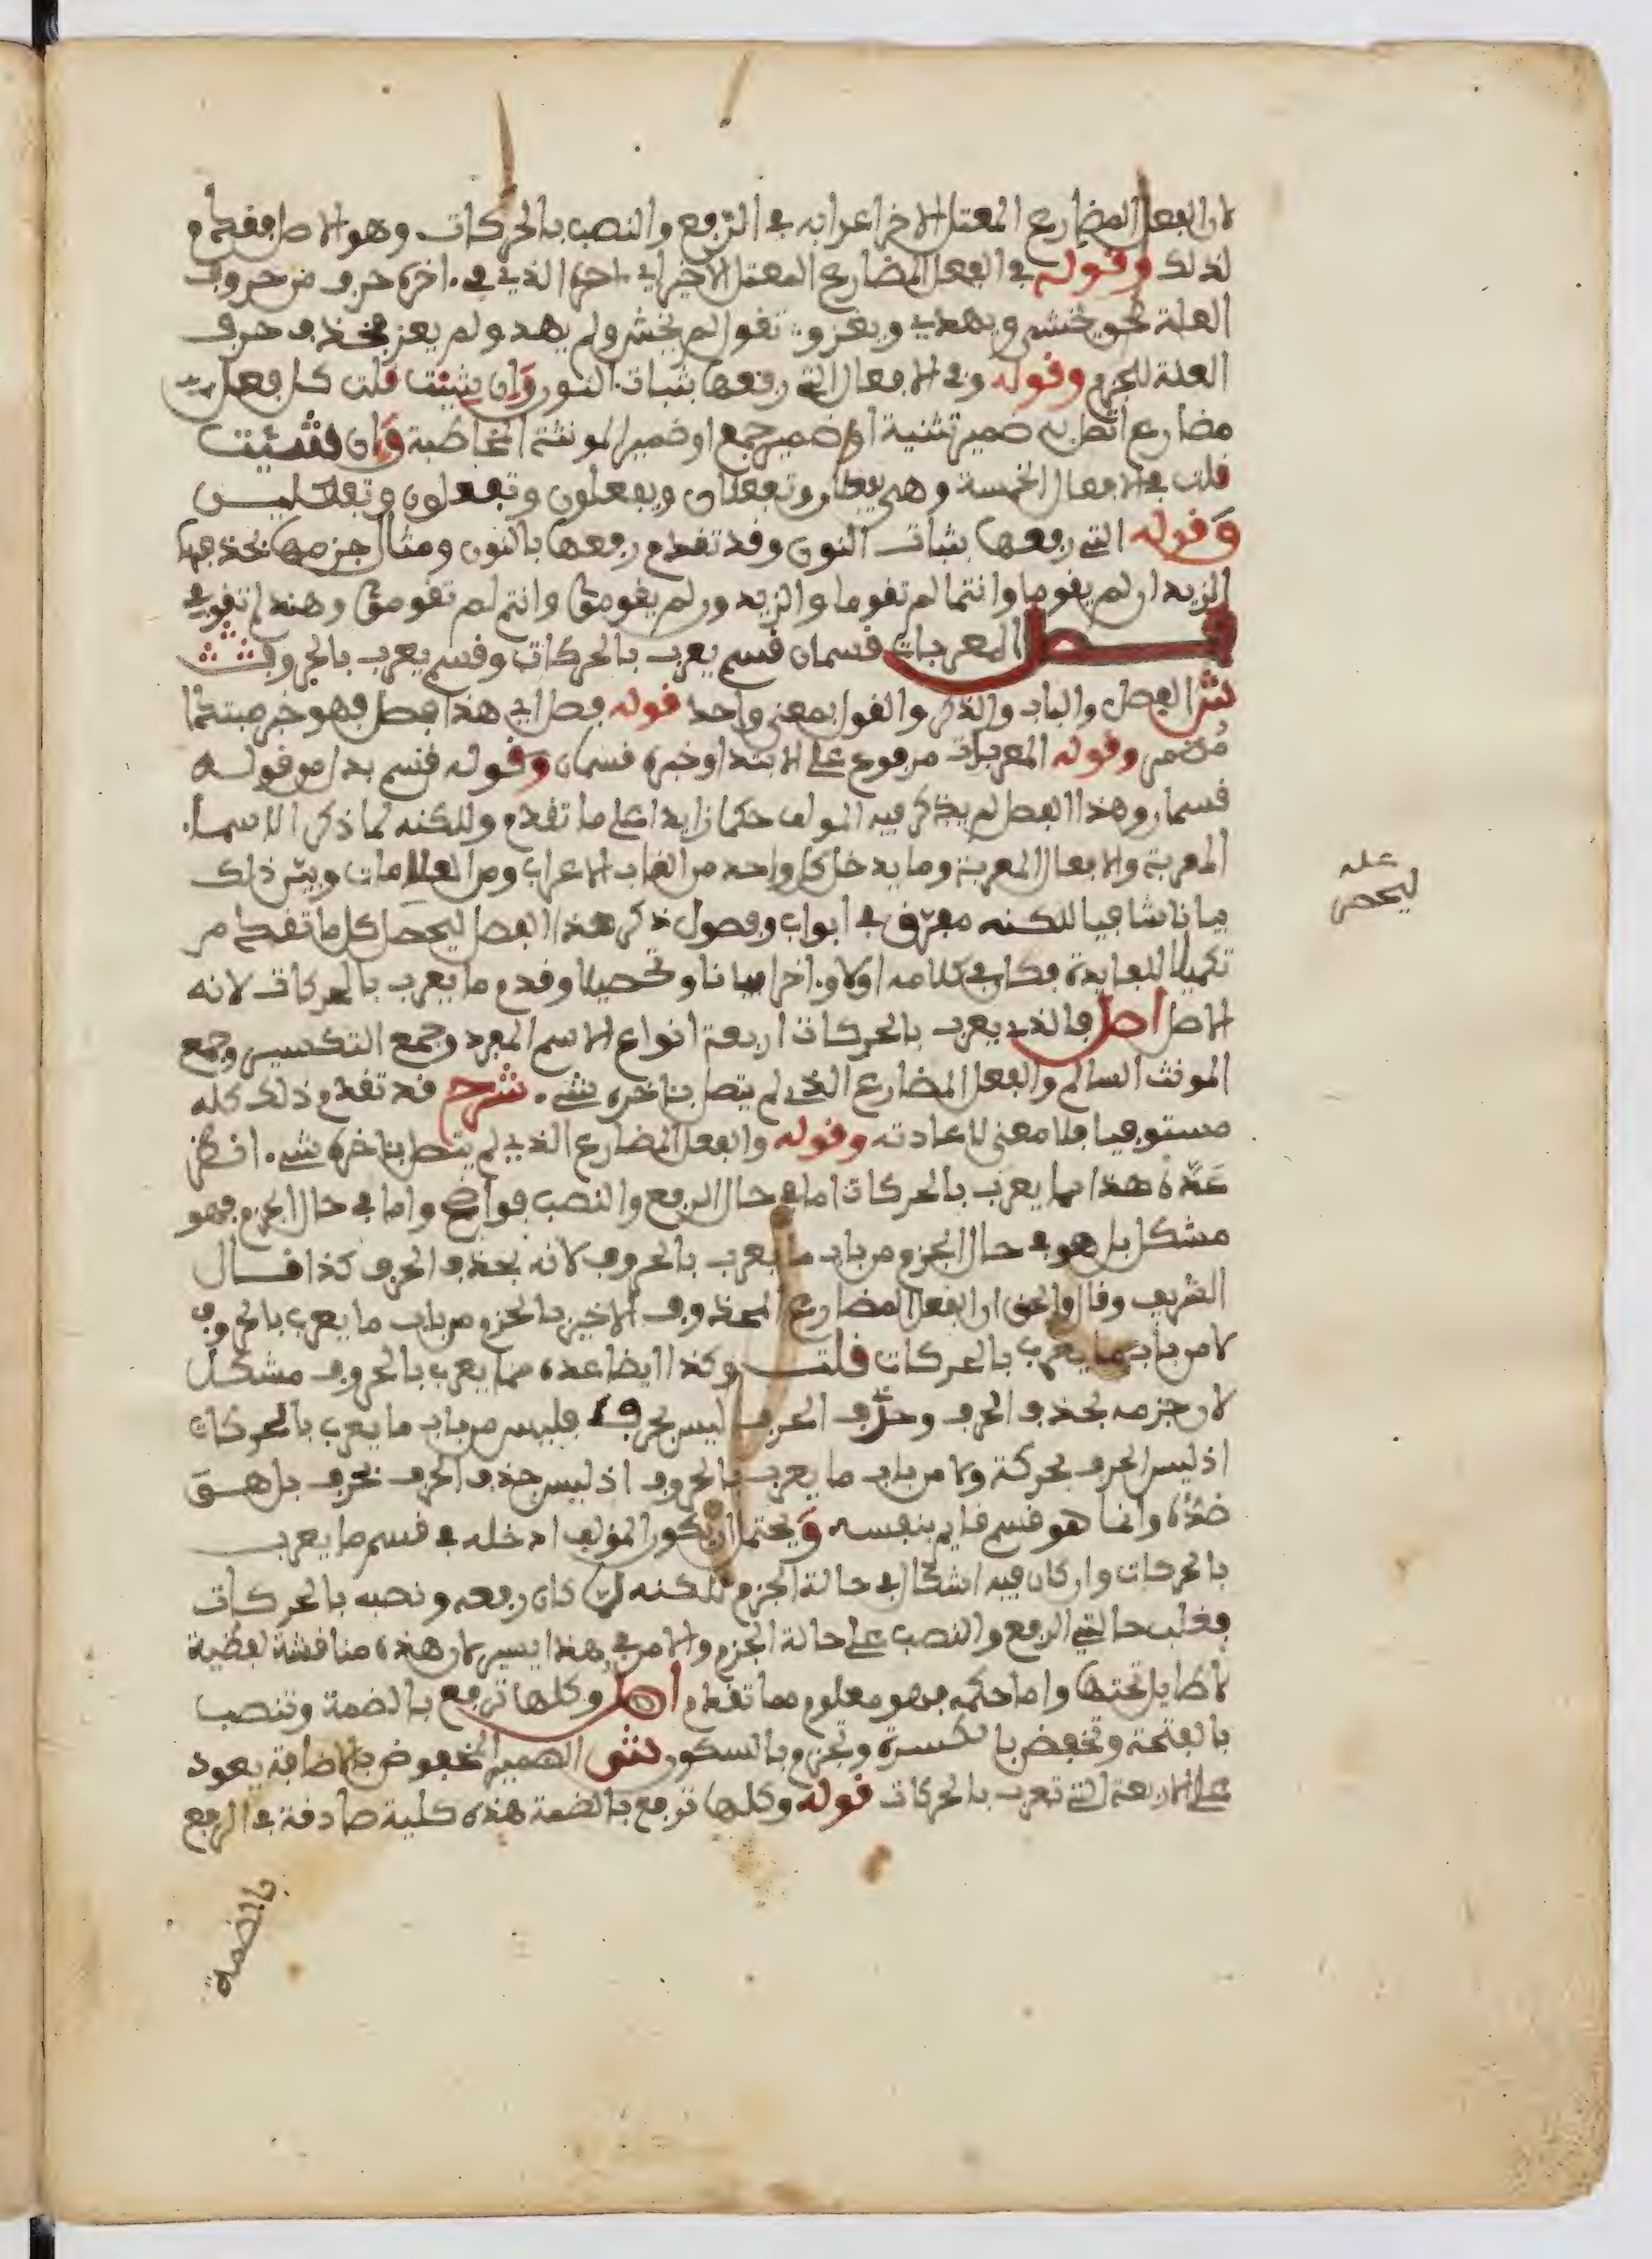 لان الفعل المضارع المعتل الاخر اعرابه في الرفع والنصب بالحركات وهو الاصل فقدم
لذلك وقوله في الفعل المضارع المعتل الاخر اي اخره الذي في ءاخره حرف من حروف
العلة نحو يخشى ويهدي ويغزو تقول لم يخش ولم يهد ولم يغز بحذف حرف
العلة للجزم وقوله وفي الافعال التي رفعها بثبات النون وان شيت قلت كل فعل
مضارع اتصل به ضمير تثنية او ضمير جمع او ضمير المونثة المخاطبة وان شئت
قلت في الافعال الخمسة وهي يفعلان وتفعلان ويفعلون وتفعلون وتفعلين
وقوله التي رفعها بثبات النون وقد تقدم رفعها بالنون ومثال جزمها بحذفها
الزيدان لم يقوما وانتما لم تقوما والزيدون لم يقوموا وانتم لم تقوموا وهند لم تقومي
فصل المعربات قسمان قسم يعرب بالحركات وقسم يعرب بالحروف
ش الفصل والباب والذكر والقول بمعنى واحد قوله فصل اي هذا فصل فهو خبر مبتدا
مضمر وقوله المعربات مرفوع على الابتدا وخبره قسمان وقوله قسم بدل من قوله
قسمان وهذا الفصل لم يذكر فيه المولف حكما زايدا على ما تقدم وللكنه لما ذكر الاسماء
المعربة والافعال المعربة وما يدخل كل واحد من القاب الاعراب ومن العلامات وبين ذلك
بيانا شافيا للكنه مفرق في ابواب وفصول ذكر هذا الفصل ليحصل كل ما تقدم من
تكميلا للفايدة فكان في كلامه اولا وءاخرا بيانا وتحصيلا وقدم ما يعرب بالحركات لانه
الاصل اصل فالذي يعرب بالحركات اربعة انواع الاسم المفرد وجمع التكسير وجمع
المونث السالم والفعل المضارع الذي لم يتصل بئاخره شيء شرح قد تقدم ذلك كله
مستوفيا فلا معنى لاعادته وقوله والفعل المضارع الذي لم يتصل بئاخره شيء
عده هذا مما يعرب بالحركات اما في حال الرفع والنصب فواضح واما في حال الجزم فهو
مشكل بل هو في حال الجزم من باب ما يعرب بالحروف لانه بحذف الحرف كذا قال
الشريف وقال والحق ان الفعل المضارع المحذوف الاخير بالجزم من باب ما يعرب بالحروف
لا من باب ما يعرب بالحركات قلت وكذا ايضا عده مما يعرب بالحروف مشكل
لان جزمه بحذف الحرف وحذف الحرف ليس بحرف فليس من باب ما يعرب بالحركات
اذ ليس الحرف بحركة ولا من باب ما يعرب بالحروف اذ ليس حذف الحرف بحرف بل هو
ضده وانما هو قسم قايم بنفسه ويحتمل ان يكون المولف ادخله في قسم ما يعرب
بالحركات وان كان فيه اشكال في حالة الجزم للكنه لما كان رفعه ونصبه بالحركات
فغلب حالتي الرفع والنصب على حالة الجزم والامر في هذا يسير لان هذه مناقشة لفظية
لا طايل تحتها واما حكمه فهو معلوم مما تقدم اصل وكلها ترفع بالضمة وتنصب
بالفتحة وتخفض بالكسرة وتجزم بالسكون ش الضمير المخفوض بالاضافة يعود
على الاربعة التي تعرب بالحركات قوله وكلها ترفع بالضمة هذه كلية صادقة في الرفع
بالضمة
عله
ليحصر